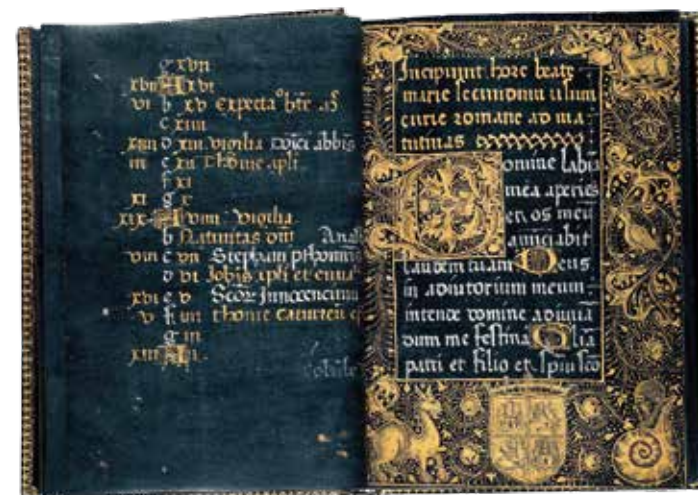 g xvii
xvii A xvi
vi b xv Expecta° bte
c xiiii
xiiii d xiii vigilia Dnici abbis
iii e xii Thome apli
f xi
xi g x
xix A viiii vigilia
b Nativitas dni
viii c vii Stephani pthomris
d vi Iohis apli et evua
xvi e v Scor Innocencium
v f iiii thome
g iii
xiii A ii
Incipiunt hore beate
marie secundum usum
curie romane ad ma-
tutinas
Domine labia
mea aperies
et os meu
anuciabit
laudem tuam Deus
in adiutorium meum
intende domine adiuva
dum me festina Glia
patri et filio et spiu sco